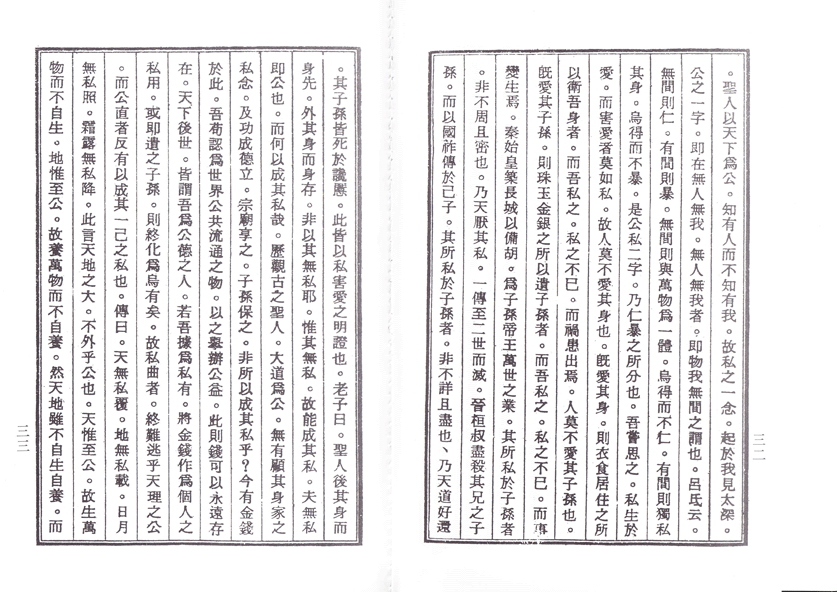 。聖人以天下爲公。知有人而不知有我。故私之一念。起於我見太深。
公之一字。即在無人無我。無人無我者。即物我無間之謂也。呂氏云。
無間則仁。有間則暴。無間則與萬物爲一體。烏得而不仁。有間則獨私
其身。烏得而不暴。是公私二字。乃仁暴之所分也。吾嘗思之。私生於
愛。而害愛者莫如私。故人莫不愛其身也。旣愛其身。則衣食居住之所
以衞吾身者。而吾私之。私之不已。而禍患出焉。人莫不愛其子孫也。
旣愛其子孫。則珠玉金銀之所以遺子孫者。而吾私之。私之不已。而事
變生焉。秦始皇築長城以備胡。爲子孫帝王萬世之業。其所私於子孫者
。非不周且密也。乃天厭其私。一傳至二世而滅。晉桓叔盡殺其兄之子
孫。而以國祚傳於己子。其所私於子孫者。非不詳且盡也、乃天道好還
三二
。其子孫皆死於讒慝。此皆以私害愛之明證也。老子曰。聖人後其身而
身先。外其身而身存。非以其無私耶。惟其無私。故能成其私。夫無私
即公也。而何以成其私哉。歷觀古之聖人。大道爲公。無有顧其身家之
私念。及功成德立。宗廟享之。子孫保之。非所以成其私乎?今有金錢
於此。吾苟認爲世界公共流通之物。以之舉辦公益。此則錢可以永遠存
在。天下後世。皆謂吾爲公德之人。若吾據爲私有。將金錢作爲個人之
私用。或即遺之子孫。則終化爲烏有矣。故私曲者。終難逃乎天理之公
。而公直者反有以成其一己之私也。傳曰。天無私覆。地無私載。日月
無私照。霜露無私降。此言天地之大。不外乎公也。天惟至公。故生萬
物而不自生。地惟至公。故養萬物而不自養。然天地雖不自生自養。而
三三